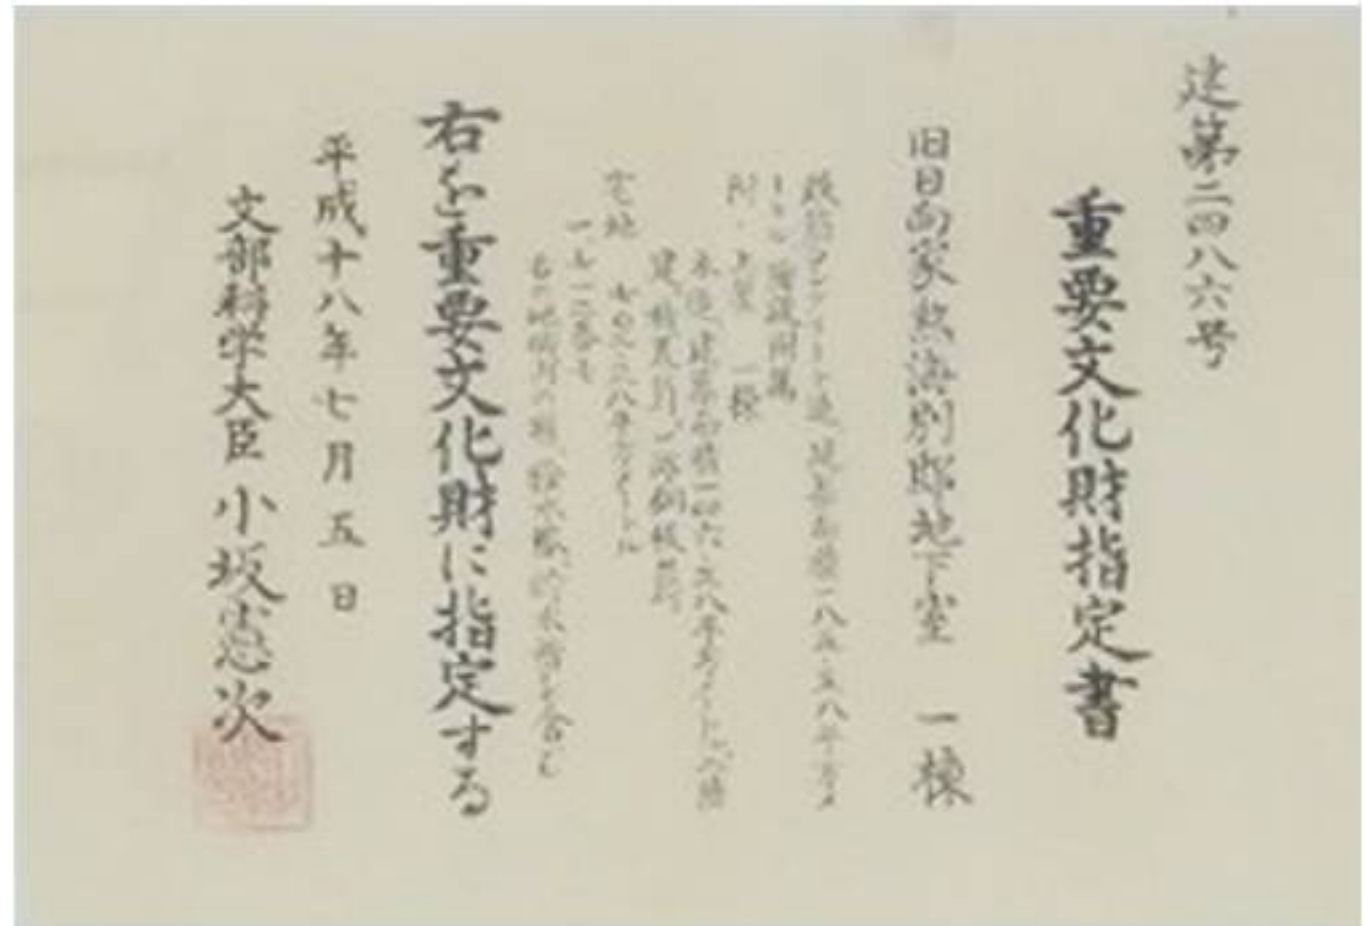 建第二四八六号
重要文化財指定書
旧日向家熱海別邸地下室 一棟
鉄筋コンクリート造、建築面積一八五・五八平方メ
ートル 階段附属
附・上屋 一棟
木造、建築面積一四六・五八平方メートル、二階
建、桟瓦葺、一部銅板葺
宅地
右の地域内の
右を重要文化財に指定する
平成十八年七月五日
文部科学大臣 小坂憲次